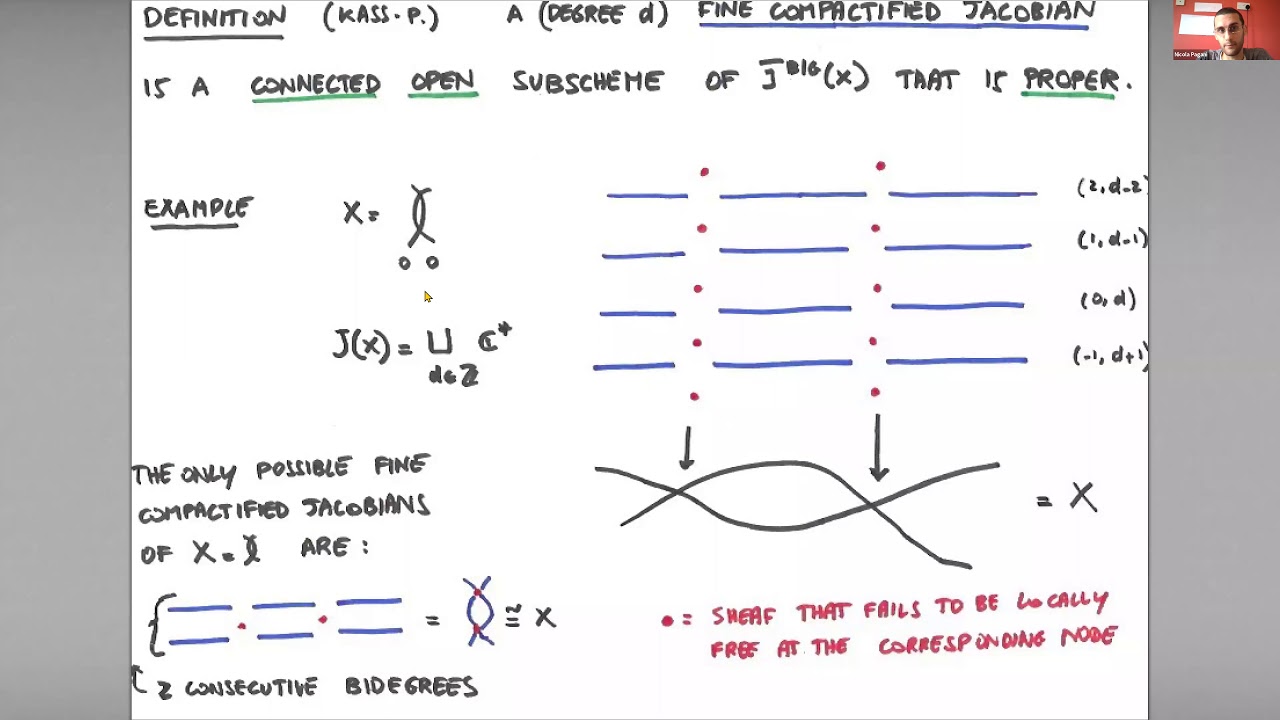 DEFINITION (KASS-P.) A (DEGREE d) FINE COMPACTIFIED JACOBIAN
IS A CONNECTED OPEN SUBSCHEME OF J̄^BIG(X) THAT IS PROPER.
EXAMPLE X =
0 0
J(X) = ⊔ ℂ*
d∈ℤ
(2, d-2)
(1, d-1)
(0, d)
(-1, d+1)
= X
THE ONLY POSSIBLE FINE
COMPACTIFIED JACOBIANS
OF X = ARE :
= ≅ X
2 CONSECUTIVE BIDEGREES
• = SHEAF THAT FAILS TO BE LOCALLY
FREE AT THE CORRESPONDING NODE
Nicola Pagani